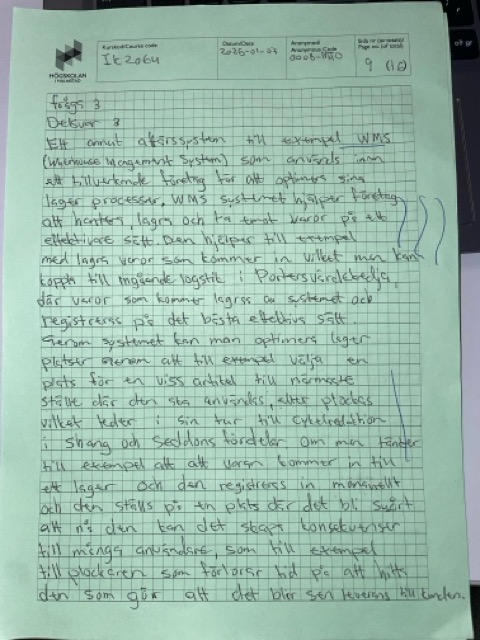 HÖGSKOLAN
I HALMSTAD
Kurskod/Course code
Datum/Date
Anonymkod
Anonymous Code
9 (10)
fråga 3
Delsvar 3
Ett annat affärssystem till exempel WMS
(Warehouse Management System) som används inom
ett tillverkande företag för att optimera sina
lager processer, WMS systemet hjälper företag
att hantera, lagra och ta emot varor på ett
effektivare sätt. Den hjälper till exempel
med lagra varor som kommer in vilket man kan
koppla till ingående logistik i Porters värdekedja,
där varor som kommer lagras av systemet och
registreras på det bästa effektiva sätt.
Genom systemet kan man optimera lager
platser genom att till exempel välja en
plats för en viss artikel till närmaste
ställe där den ska användas, eller plockas
vilket leder i sin tur till cykelreduktion
i Shang och Seddons fördelar om man tänker
till exempel att att varan kommer in till
ett lager och den registreras in manuellt
och den ställs på en plats där det bli svårt
att nå den kan det skapa konsekvenser
till många användare, som till exempel
till plockaren som förlorar tid på att hitta
den som gör att det blir sen leverans till kunden.